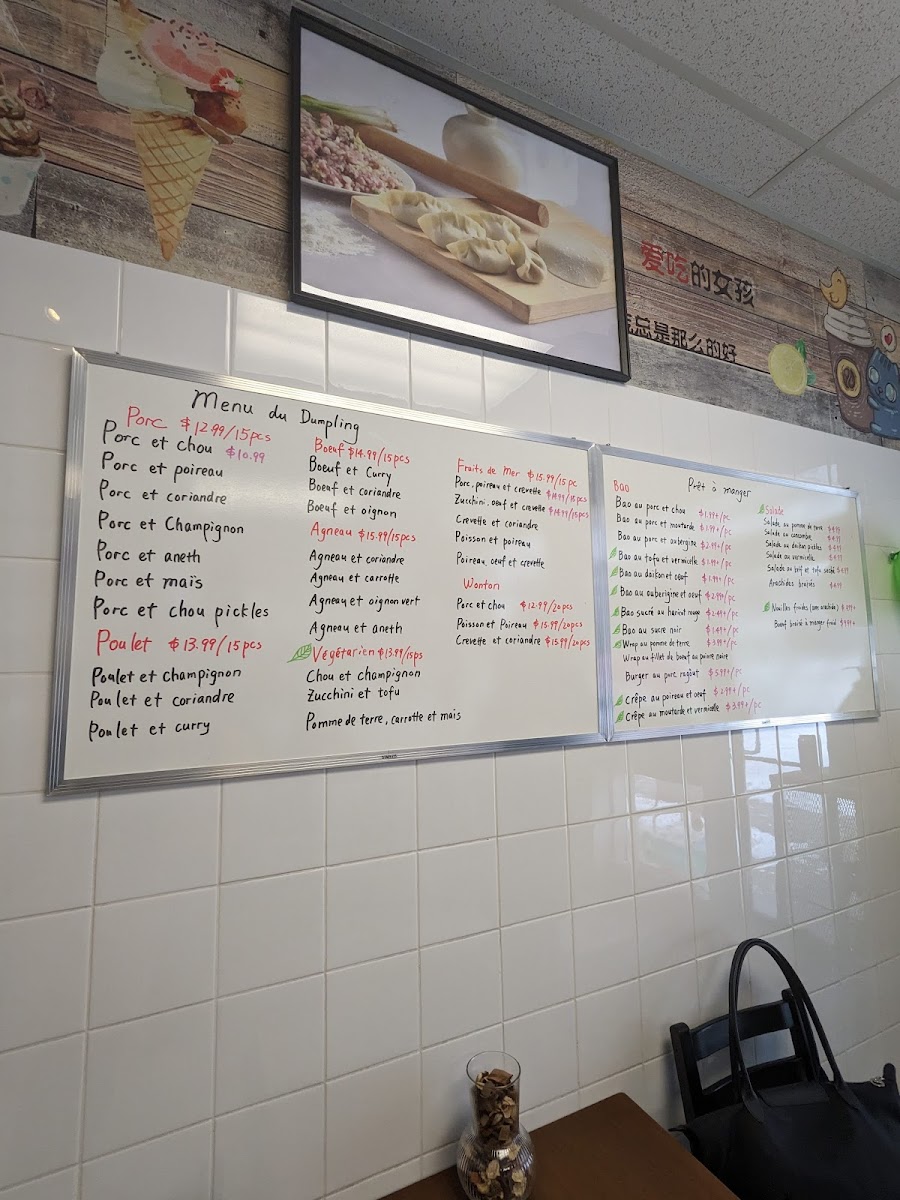 爱吃的女孩
总是那么的好
Menu du Dumpling
Porc $12.99/15pcs
Porc et chou $10.99
Porc et poireau
Porc et coriandre
Porc et Champignon
Porc et aneth
Porc et maïs
Porc et chou pickles
Poulet $13.99/15pcs
Poulet et champignon
Poulet et coriandre
Poulet et curry
Boeuf $14.99/15pcs
Boeuf et Curry
Boeuf et coriandre
Boeuf et oignon
Agneau $15.99/15pcs
Agneau et coriandre
Agneau et carotte
Agneau et oignon vert
Agneau et aneth
Végétarien $13.99/15ps
Chou et champignon
Zucchini et tofu
Pomme de terre, carrotte et mais
Fruits de Mer $15.99/15 pc
Porc, poireau et crevette $14.99/15pcs
Zucchini, oeuf et crevette $14.99/15pcs
Crevette et coriandre
Poisson et poireau
Poireau, oeuf et crevette
Wonton
Porc et chou $12.99/20pcs
Poisson et Poireau $15.99/20pcs
Crevette et coriandre $15.99/20pcs
Prêt à manger
Bao
Bao au porc et chou $1.99+/pc
Bao au porc et moutarde $1.99+/pc
Bao au porc et aubergine $2.99+/pc
Bao au tofu et vermicelle $1.99+/pc
Bao au daikon et oeuf $1.99+/pc
Bao au auberigine et oeuf $2.99+/pc
Bao sucré au haricot rouge $2.49+/pc
Bao au sucre noir $1.49+/pc
Wrap au pomme de terre $3.99+/pc
Wrap au fillet de boeuf au poivre noire
Burger au porc ragoût $5.99+/pc
Crêpe au poireau et oeuf $2.99+/pc
Crêpe au moutarde et vermicelle $3.99+/pc
Salade
Salade au pomme de terre $4.99
Salade au concombre $4.99
Salade au daikon pickles $4.99
Salade au vermicelle $4.99
Salade au brif et tofu séché
Arachides braisés $4.99
Nouilles froides (sans arachides)
Boeuf braisé à manger froid